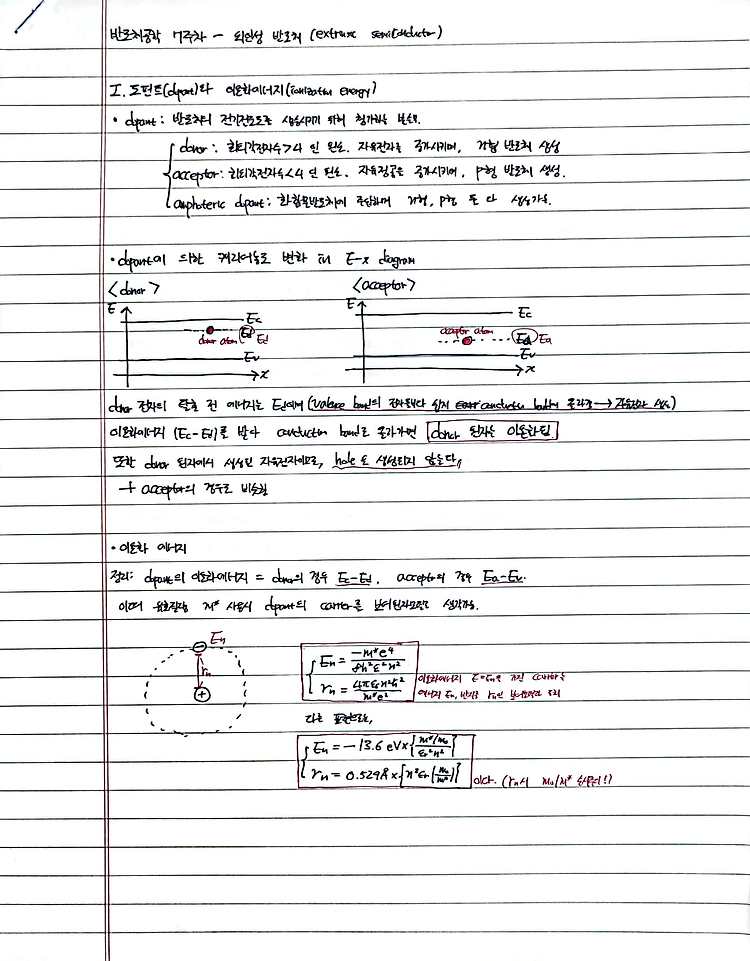 반도체공학 7주차 - 외인성 반도체 (extrinsic semiconductor)
I. 도펀트(dopant)와 이온화에너지(ionization energy)
• dopant : 반도체의 전기전도도를 상승시키기 위해 첨가하는 불순물.
donor : 최외각전자수>4 인 원소. 자유전자를 증가시키며, n형 반도체 생성
acceptor : 최외각전자수<4 인 원소. 자유정공을 증가시키며, p형 반도체 생성.
amphoteric dopant : 화합물반도체에 주입하며 n형, p형 둘 다 생성가능.
• dopant에 의한 캐리어농도 변화 in E-x diagram
<donor> <acceptor>
E Ec E Ec
donor atom Ed Ed acceptor atom Ea Ea
Ev Ev
x x
donor 전자의 탈출 전 에너지는 Ed이며 (valence band의 전자보다 쉽게 conduction band로 올라감 → 자유전자 생성)
이온화에너지 (Ec-Ed)를 받아 conduction band로 올라가면 donor 원자는 이온화됨
또한 donor 원자에서 생성된 자유전자이므로, hole은 생성되지 않는다,,
+ acceptor의 경우도 비슷함
• 이온화 에너지
정리: dopant의 이온화에너지 = donor의 경우 Ec-Ed, acceptor의 경우 Ea-Ev.
이때 유효질량 m* 사용시 dopant의 carrier를 보어원자모델로 생각가능.
En
rn
− +
En = -m*e⁴ / 8h²ε²n²
rn = 4πεn²ħ² / m*e²
이온화에너지 E=En을 가진 carrier는
에너지 En, 반지름 rn인 보어모델과 동치
다른 표현으로는,
En = -13.6 eV × {m*/m₀ / εr²n²}
rn = 0.529Å × {n²εr(m₀/m*)} 이다. (rn시 m₀/m* 임에주의!)